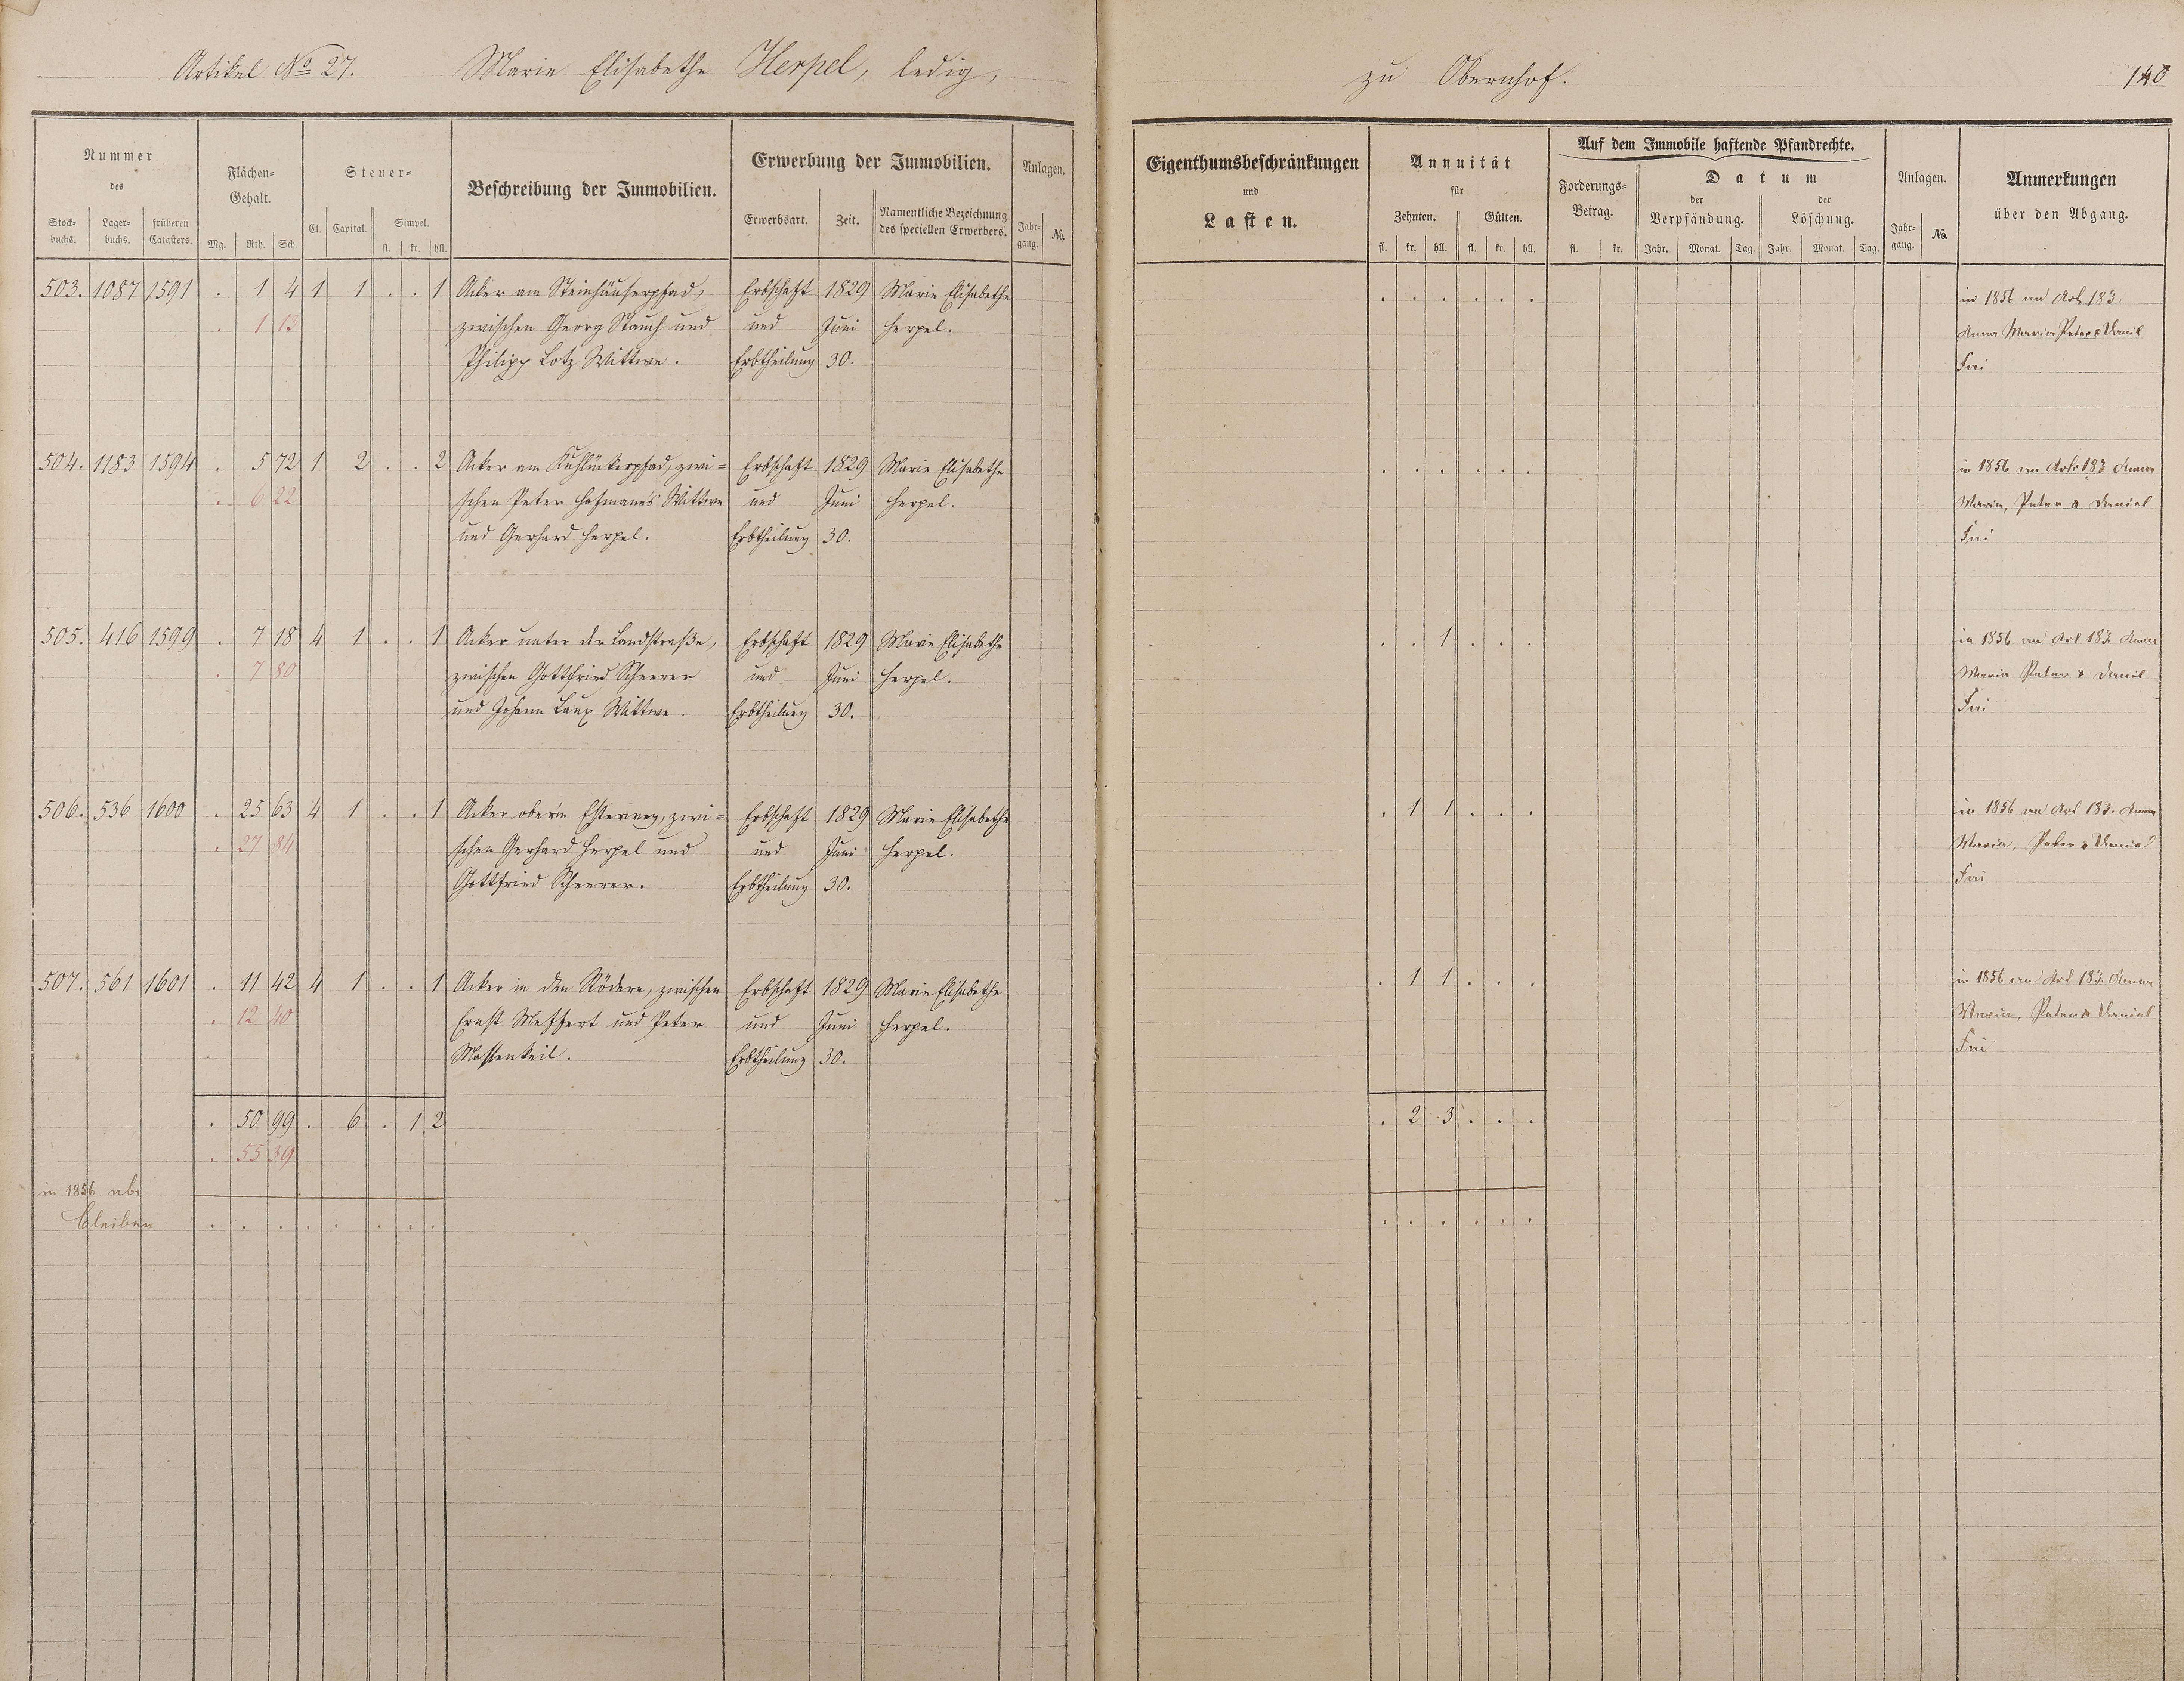 Artikel No 27. Marie Elisabethe Herpel, ledig, zu Obernhof. 140
Nummer des
Stock-buchs. Lager-buchs. früheren Catasters.
Flächen-Gehalt.
Mg. Rth. Sch.
Steuer-
Cl. Capital. Simpel.
fl. kr. hll.
Beschreibung der Immobilien.
Erwerbung der Immobilien.
Erwerbsart. Zeit. Namentliche Bezeichnung des speciellen Erwerbers.
Anlagen.
Jahr-gang. No.
Eigenthumsbeschränkungen
und
Lasten.
Annuität
für
Zehnten. Gülten.
fl. kr. hll. fl. kr. hll.
Auf dem Immobile haftende Pfandrechte.
Forderungs-Betrag.
fl. kr.
Datum
der Verpfändung. der Löschung.
Jahr. Monat. Tag. Jahr. Monat. Tag.
Anlagen.
Jahr-gang. No.
Anmerkungen
über den Abgang.
503. 1087 1591 . 1 4 1 1 . . 1 Acker am Steinhäuserpfad, Erbschaft 1829 Marie Elisabethe . . . . . . in 1856 an Art 183.
. 1 13 zwischen Georg Stauch und und Juni Herpel. Anna Maria Peter & Daniel
Philipp Lotz Wittwe. Erbtheilung 30. Frei
504. 1183 1594 . 5 72 1 2 . . 2 Acker am zwi= Erbschaft 1829 Marie Elisabethe . . . . . . in 1856 an Art 183 Anna
. 6 22 schen Peter Hofmanns Wittwe und Juni Herpel. Maria, Peter & Daniel
und Gerhard Herpel. Erbtheilung 30. Frei
505. 416 1599 . 7 18 4 1 . . 1 Acker unter der Landstraße, Erbschaft 1829 Marie Elisabethe . . 1 . . . in 1856 an Art 183. Anna
. 7 80 zwischen Gottfried Scheerer und Juni Herpel. Maria Peter & Daniel
und Johann Laux Wittwe. Erbtheilung 30. Frei
506. 536 1600 . 25 63 4 1 . . 1 Acker ober'm zwi= Erbschaft 1829 Marie Elisabethe . 1 1 . . . in 1856 an Art 183. Anna
. 27 84 schen Gerhard Herpel und und Juni Herpel. Maria, Peter & Daniel
Gottfried Scheerer. Erbtheilung 30. Frei
507. 561 1601 . 11 42 4 1 . . 1 Acker in den Rödern, zwischen Erbschaft 1829 Marie Elisabethe . 1 1 . . . in 1856 an Art 183. Anna
. 12 40 Ernst Meffert und Peter und Juni Herpel. Maria, Peter & Daniel
Massenkeil. Erbtheilung 30. Frei
. 50 99 . 6 . 1 2 . 2 3 . . .
. 55 39
in 1856 ab
bleiben . . . . . . . . . . . . . .